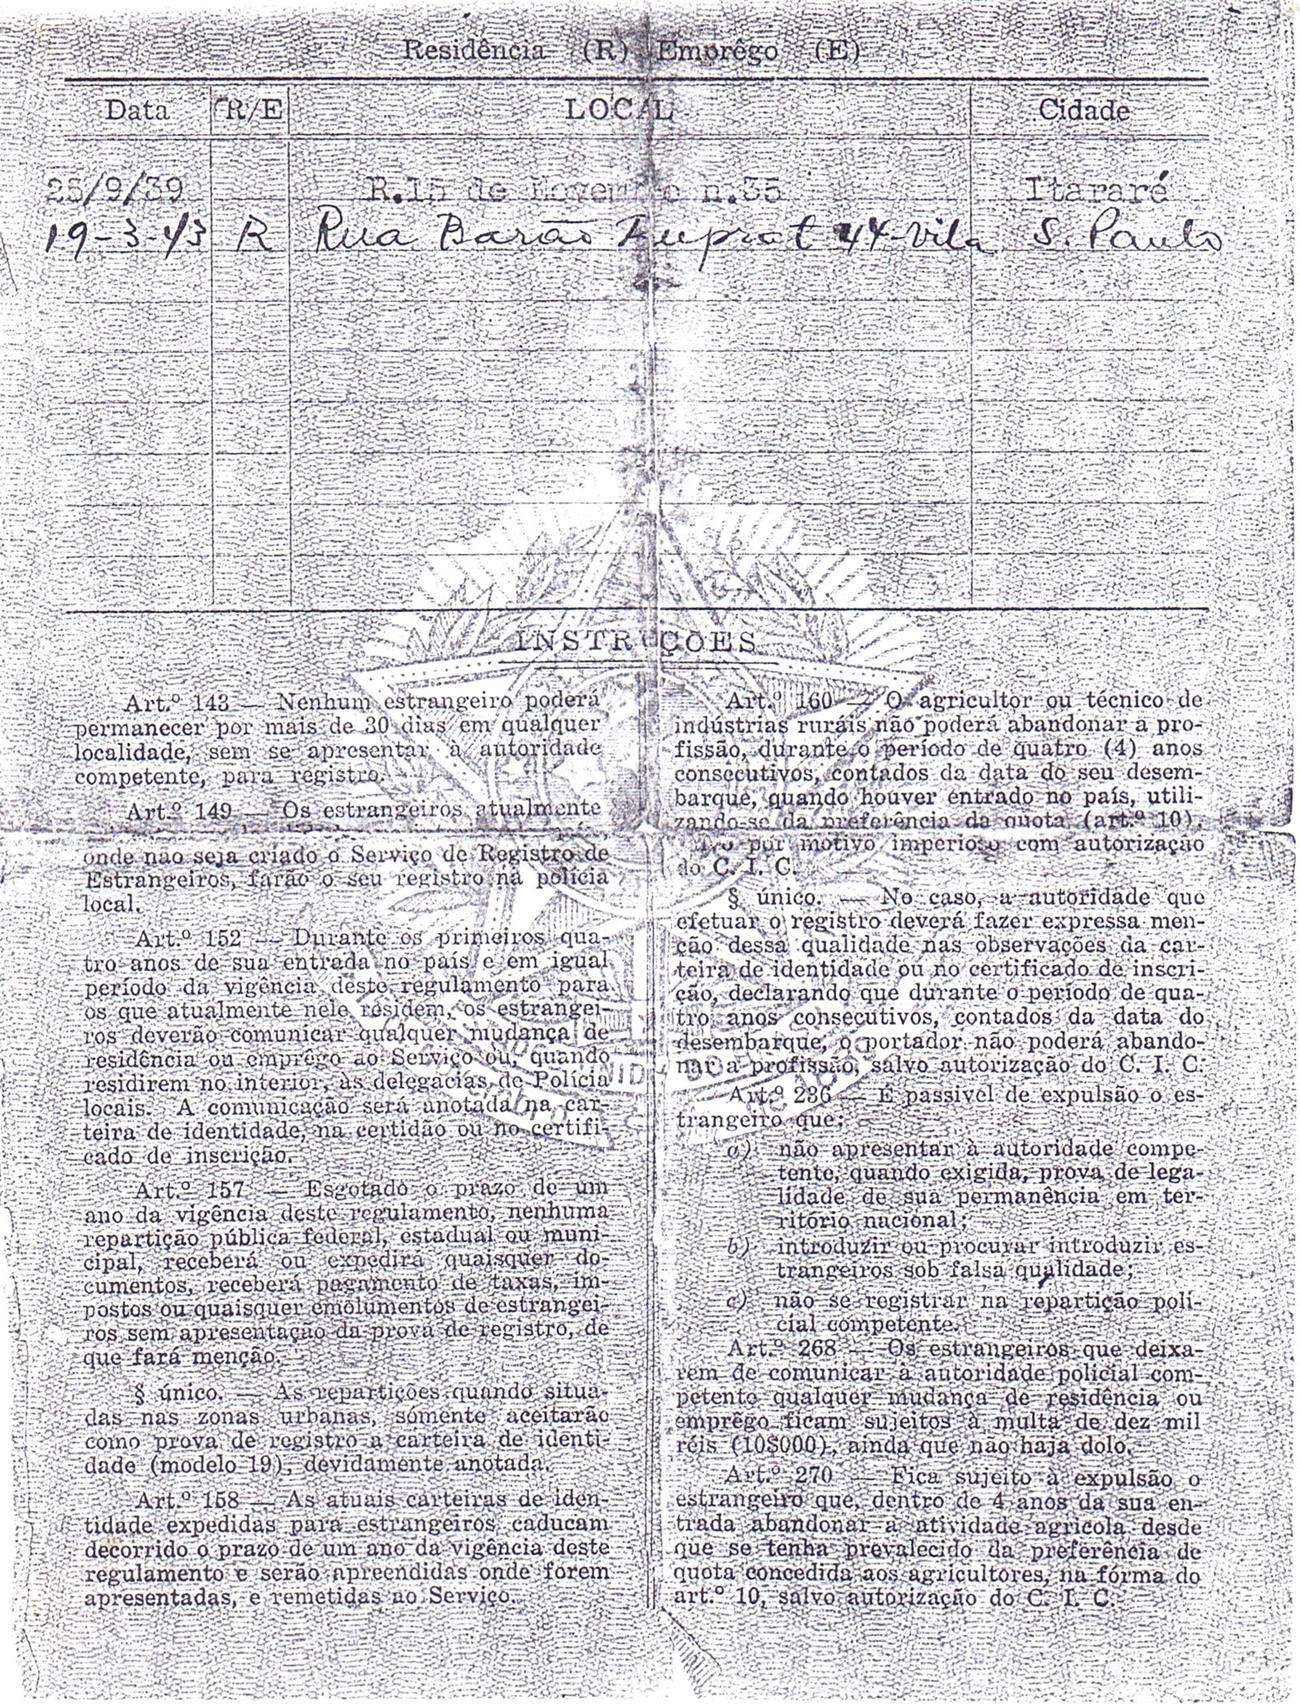 Residência (R) Emprêgo (E)
Data R/E LOCAL Cidade
25/9/39 R.15 de Novembro n.35 Itararé
19-3-43 R Rua Barão Duprat 44-Vila S. Paulo
INSTRUÇÕES
Art.º 143 — Nenhum estrangeiro poderá
permanecer por mais de 30 dias em qualquer
localidade, sem se apresentar à autoridade
competente, para registro.
Art.º 149 — Os estrangeiros atualmente
onde não seja criado o Serviço de Registro de
Estrangeiros, farão o seu registro na polícia
local.
Art.º 152 — Durante os primeiros qua-
tro anos de sua entrada no país e em igual
período da vigência dêste regulamento para
os que atualmente nele residem, os estrangei-
ros deverão comunicar qualquer mudança de
residência ou emprêgo ao Serviço ou, quando
residirem no interior, às delegacias de Polícia
locais. A comunicação será anotada na car-
teira de identidade, na certidão ou no certifi-
cado de inscrição.
Art.º 157 — Esgotado o prazo de um
ano da vigência deste regulamento, nenhuma
repartição pública federal, estadual ou muni-
cipal, receberá ou expedirá quaisquer do-
cumentos, receberá pagamento de taxas, im-
postos ou quaisquer emolumentos de estrangei-
ros sem apresentação da prova de registro, de
que fará menção.
§ único. — As repartições quando situa-
das nas zonas urbanas, sómente aceitarão
como prova de registro a carteira de identi-
dade (modelo 19), devidamente anotada.
Art.º 158 — As atuais carteiras de iden-
tidade expedidas para estrangeiros caducam
decorrido o prazo de um ano da vigência deste
regulamento e serão apreendidas onde forem
apresentadas, e remetidas ao Serviço.
Art.º 160 — O agricultor ou técnico de
indústrias ruráis não poderá abandonar a pro-
fissão, durante o período de quatro (4) anos
consecutivos, contados da data do seu desem-
barque, quando houver entrado no país, utili-
zando-se da preferência da quota (art.º 10),
por motivo imperioso com autorização
do C. I. C.
§ único. — No caso, a autoridade que
efetuar o registro deverá fazer expressa men-
ção dessa qualidade nas observações da car-
teira de identidade ou no certificado de inscri-
ção, declarando que durante o período de qua-
tro anos consecutivos, contados da data do
desembarque, o portador não poderá abando-
nar a profissão, salvo autorização do C. I. C.
Art.º 236 — É passivel de expulsão o es-
trangeiro que:
a) não apresentar à autoridade compe-
tente, quando exigida, prova de lega-
lidade de sua permanência em ter-
ritório nacional;
b) introduzir ou procurar introduzir es-
trangeiros sob falsa qualidade;
c) não se registrar na repartição poli-
cial competente.
Art.º 268 — Os estrangeiros que deixa-
rem de comunicar à autoridade policial com-
petente qualquer mudança de residência ou
emprêgo ficam sujeitos à multa de dez mil
réis (10$000), ainda que não haja dolo.
Art.º 270 — Fica sujeito à expulsão o
estrangeiro que, dentro de 4 anos da sua en-
trada abandonar a atividade agricola desde
que se tenha prevalecido da preferência de
quota concedida aos agricultores, na fórma do
art.º 10, salvo autorização do C. I. C.